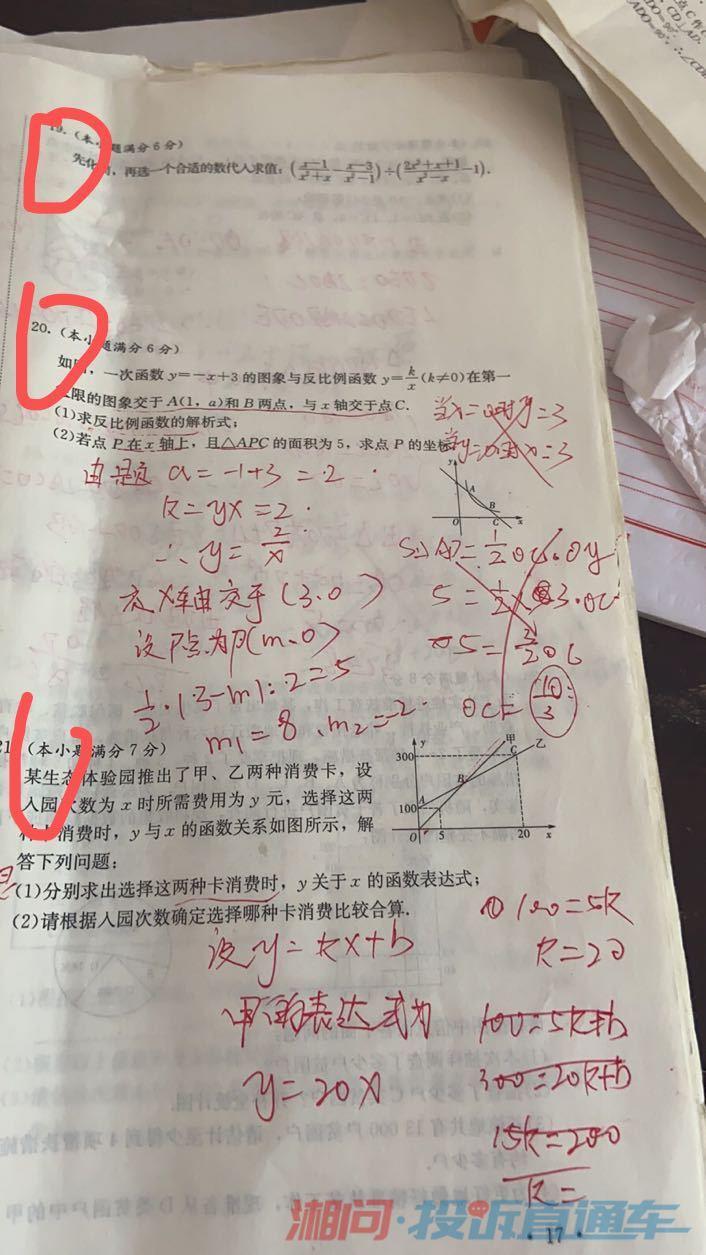 19.(本小题满分6分)
先化简，再选一个合适的数代入求值：(x-1/x²+x - x-3/x²-1)÷(2x²+x+1/x²-x -1).
20.(本小题满分6分)
如图，一次函数y=-x+3的图象与反比例函数y=k/x(k≠0)在第一
象限的图象交于A(1，a)和B两点，与x轴交于点C.
(1)求反比例函数的解析式；
(2)若点P在x轴上，且△APC的面积为5，求点P的坐标.
当x=0时y=3
当y=0时x=3
由题 a=-1+3=2.
k=yx=2.
∴y=2/x
A
B
C
O
x
y
在X轴交于(3.0)
设P点为P(m、0)
1/2·|3-m|·2=5
m₁=8、m₂=-2.
5=
OC=10/3
21.(本小题满分7分)
某生态体验园推出了甲、乙两种消费卡，设
入园次数为x时所需费用为y元，选择这两
种卡消费时，y与x的函数关系如图所示，解
答下列问题：
y
甲
乙
300
100
A
B
C
O
5
20
x
(1)分别求出选择这两种卡消费时，y关于x的函数表达式；
(2)请根据入园次数确定选择哪种卡消费比较合算.
设y=kx+b
甲的表达式为
y=20x
① 100=5k
k=20
100=5k+b
300=20k+b
15k=200
k=
湘问·投诉直通车
· 17 ·